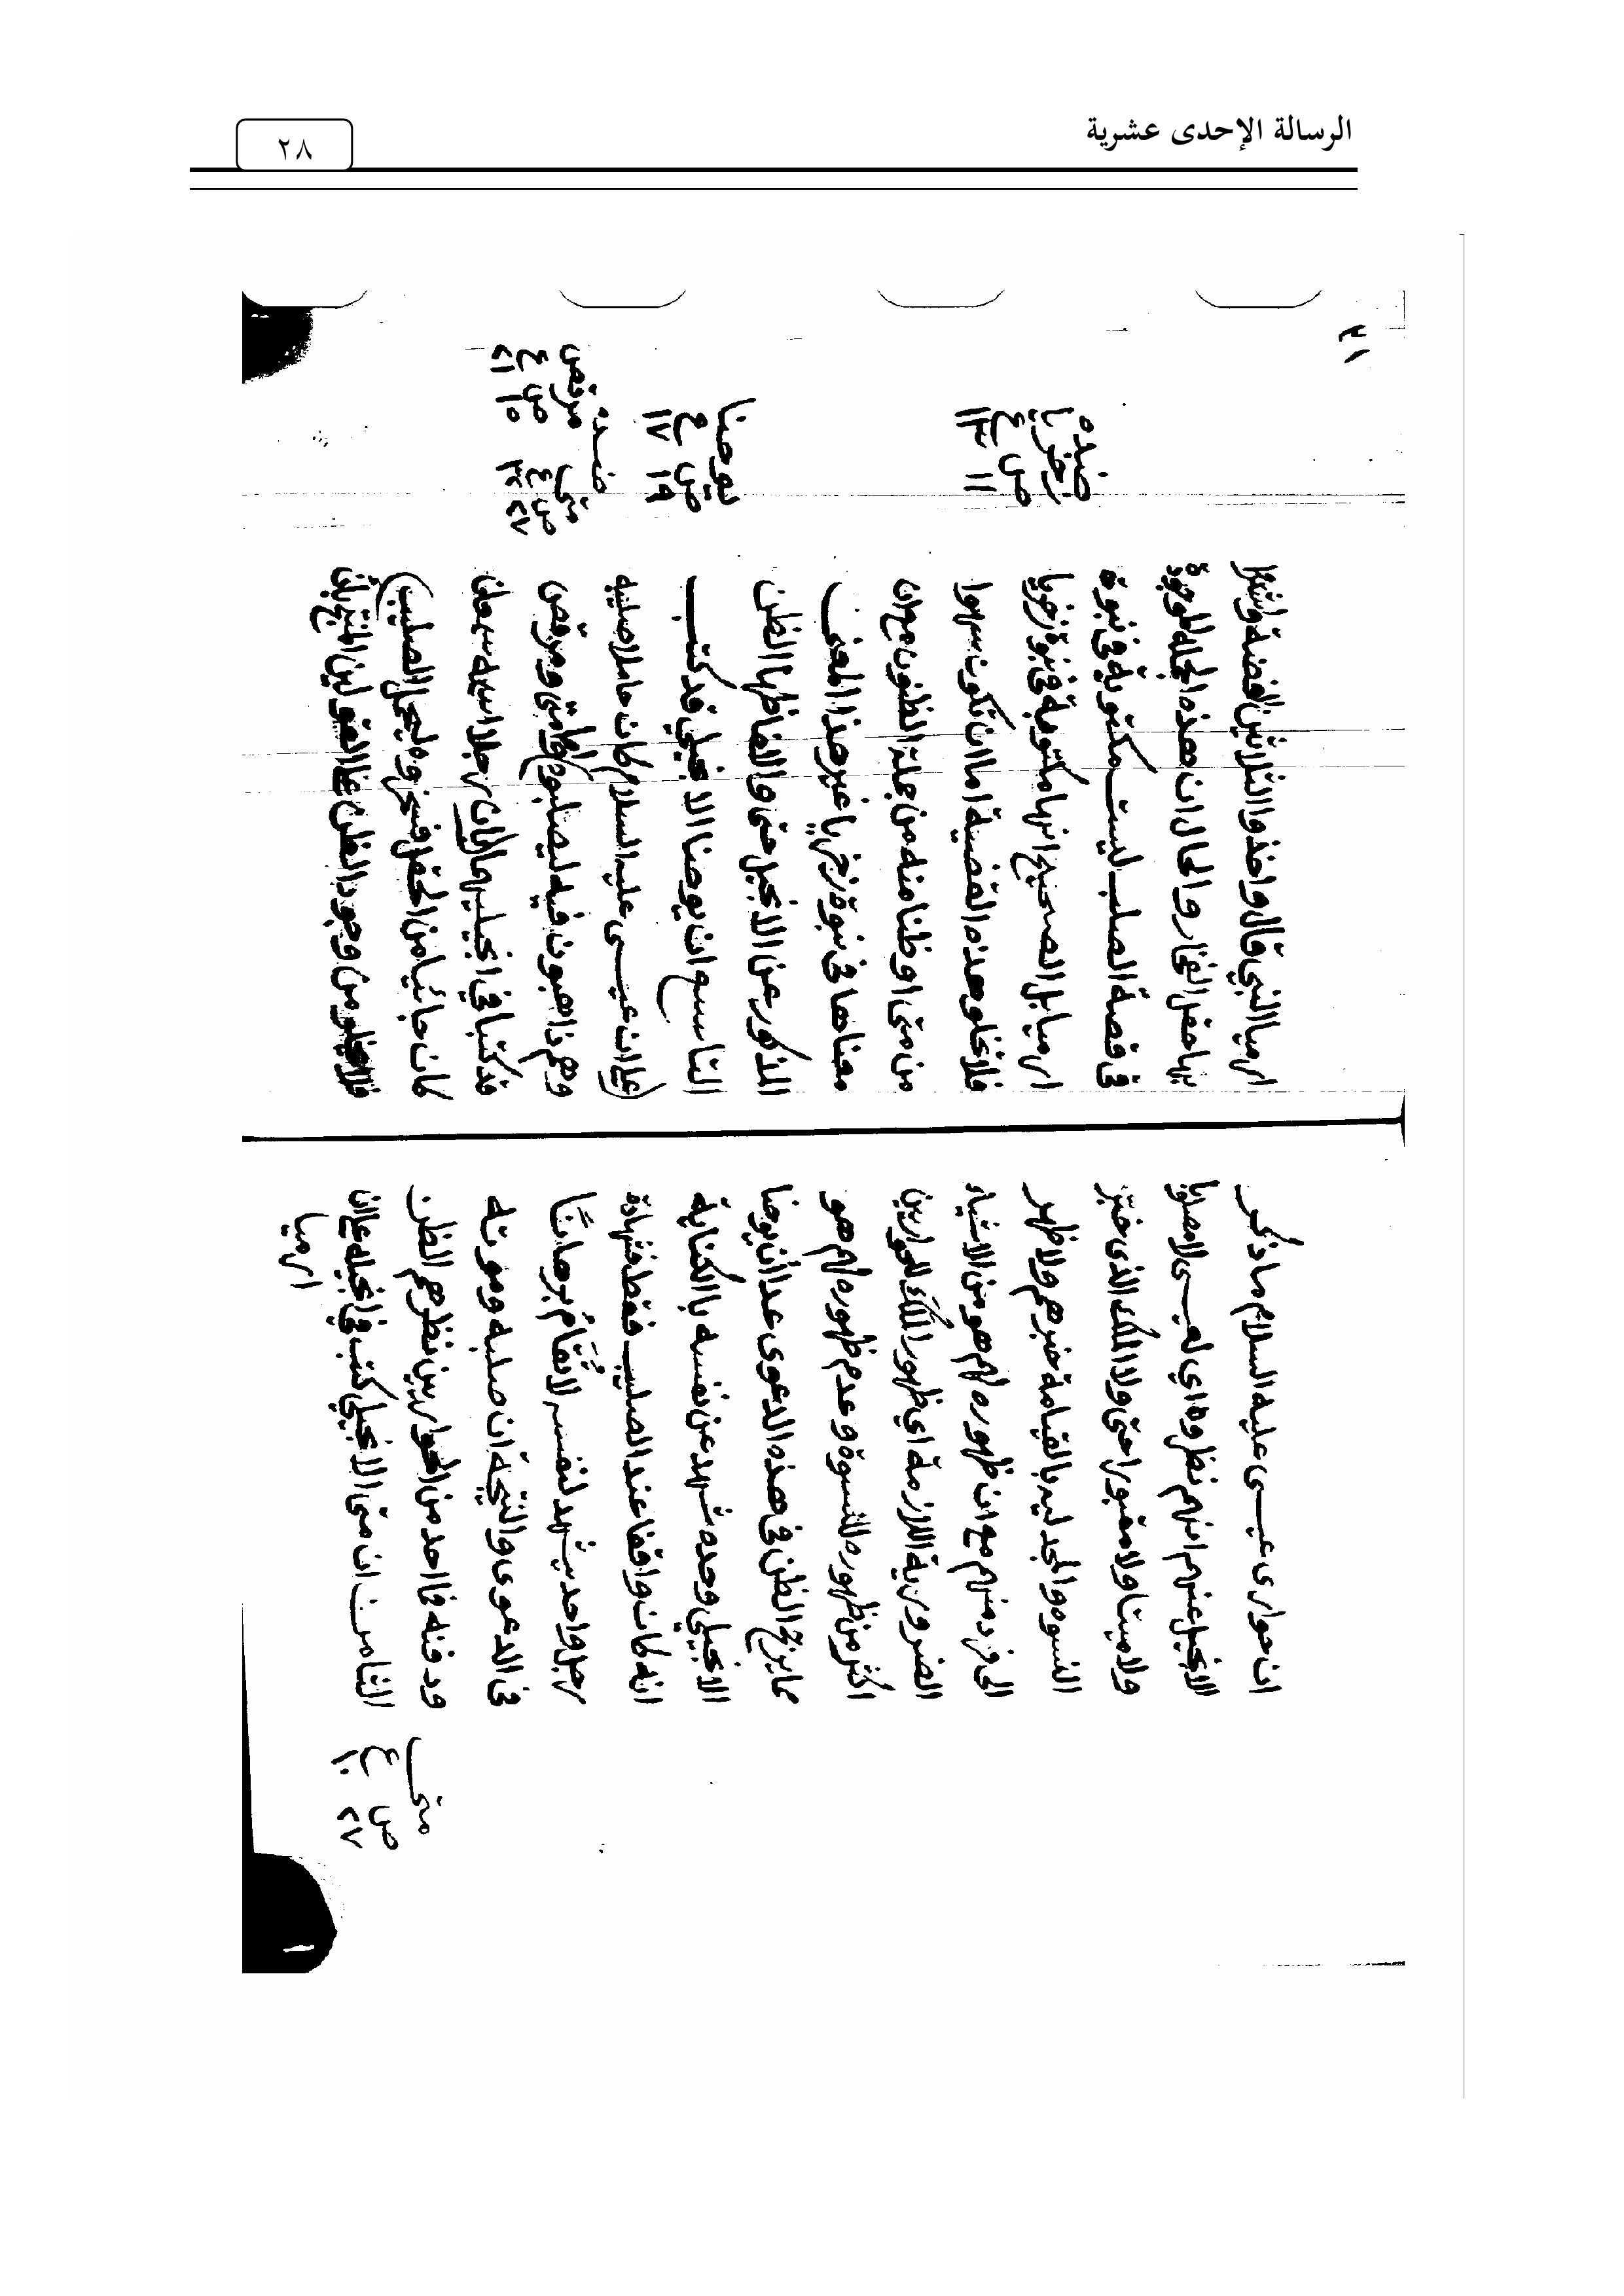 الرسالة الإحدى عشرية
٢٨
ان حوارى عيسى عليه السلام ما ذكر
الانجيل عنهم انهم نظروه اي لعيسى لا مصلوبا
ولا ميتا ولا مقبورا حتى ولا الملاك الذى خبّر
النسوه والمجدليه بالقيامة خبرهم ولا ظهر
الى فرد منهم مع ان ظهوره لهم هو من الاشياء
الضرورية اللازمة اي ظهور الملاك للحواريين
اكثر من ظهوره للنسوة وعدم ظهوره لهم هو
مما الظن في هذه الدعوى عدا أن يوحنا
الانجيلي وحده شهد عن نفسه بالكناية
انه كان واقفا عند الصليب فقط فشهادة
رجل واحد يشهد لنفسه لا تقام برهانًا
في الدعوى والنتيجة ان صلبه وموته
ودفنه فما احد من الحواريين نظرهم الظن
الثامن ان متى الانجيلي كتب في انجيله على ان
ارميا
متى
ص ع
٢٧ ١٠
٢١
ارميا النبي قال واخذوا الثلاثين الفضة
بها حقل الفخار والحال ان هذه الجملة الموجودة
في قصة الصلب ليست مكتوبة في نبوة
ارميا بل الصحيح انها مكتوبة في نبوة زخريا
فلا تخلو هذه القضية اما ان تكون سهوا
من متى او ظنا منه من جملة الظنون مع ان
معناها في نبوة زخريا غير هذا المعنى
المذكور عن الانجيل حتى والالفاظ ايضا الظن
التاسع ان يوحنا الانجيلي قد كتب
على ان عيسى عليه السلام كان حاملا صليبه
وهم ذاهبون فيه ليصلبوه واما متى ومرقص
فذ كتبا في انجيليهما بان رجلا اسمه سمعان
كان جائيا من الحقل فسخروه ليحمل الصليب
فلا يخلو من وجود الظن على القولين
ضده
زخريا
ص ع
١١ ١٣
يوحنا
ص ع
١٩ ١٧
ضده
متى مرقص
ص ع ص ع
٢٧ ٣٢ ١٥ ٢١